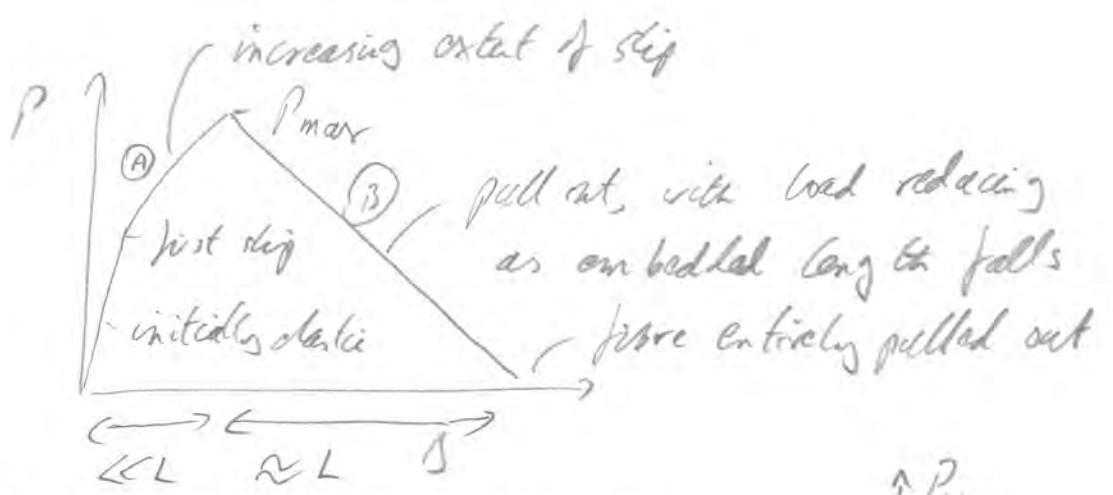 increasing extent of slip
P
Pmax
A
B
pull out, with load reducing
as embedded length falls
first slip
initially elastic
fibre entirely pulled out
<<L
≈ L
Δ
Pmax